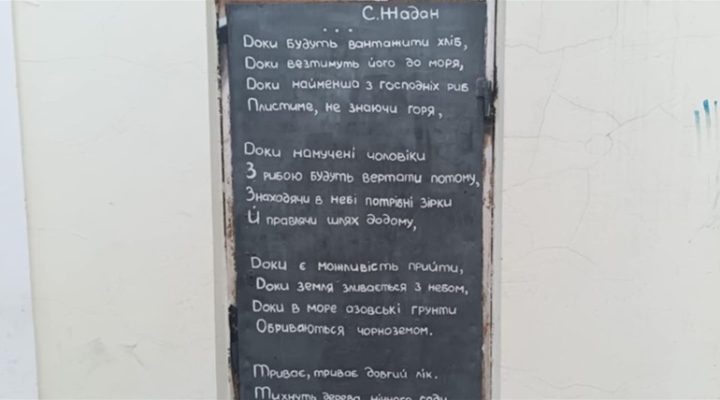 С. Жадан
...
Доки будуть вантажити хліб,
Доки везтимуть його до моря,
Доки найменша з господніх риб
Плистиме, не знаючи горя,
Доки намучені чоловіки
З рибою будуть вертати потому,
Знаходячи в небі потрібні зірки
Й правлячи шлях додому,
Доки є можливість прийти,
Доки земля зливається з небом,
Доки в море азовські ґрунти
Обриваються чорноземом.
Триває, триває довгий лік.
Тихнуть дерева нічного саду